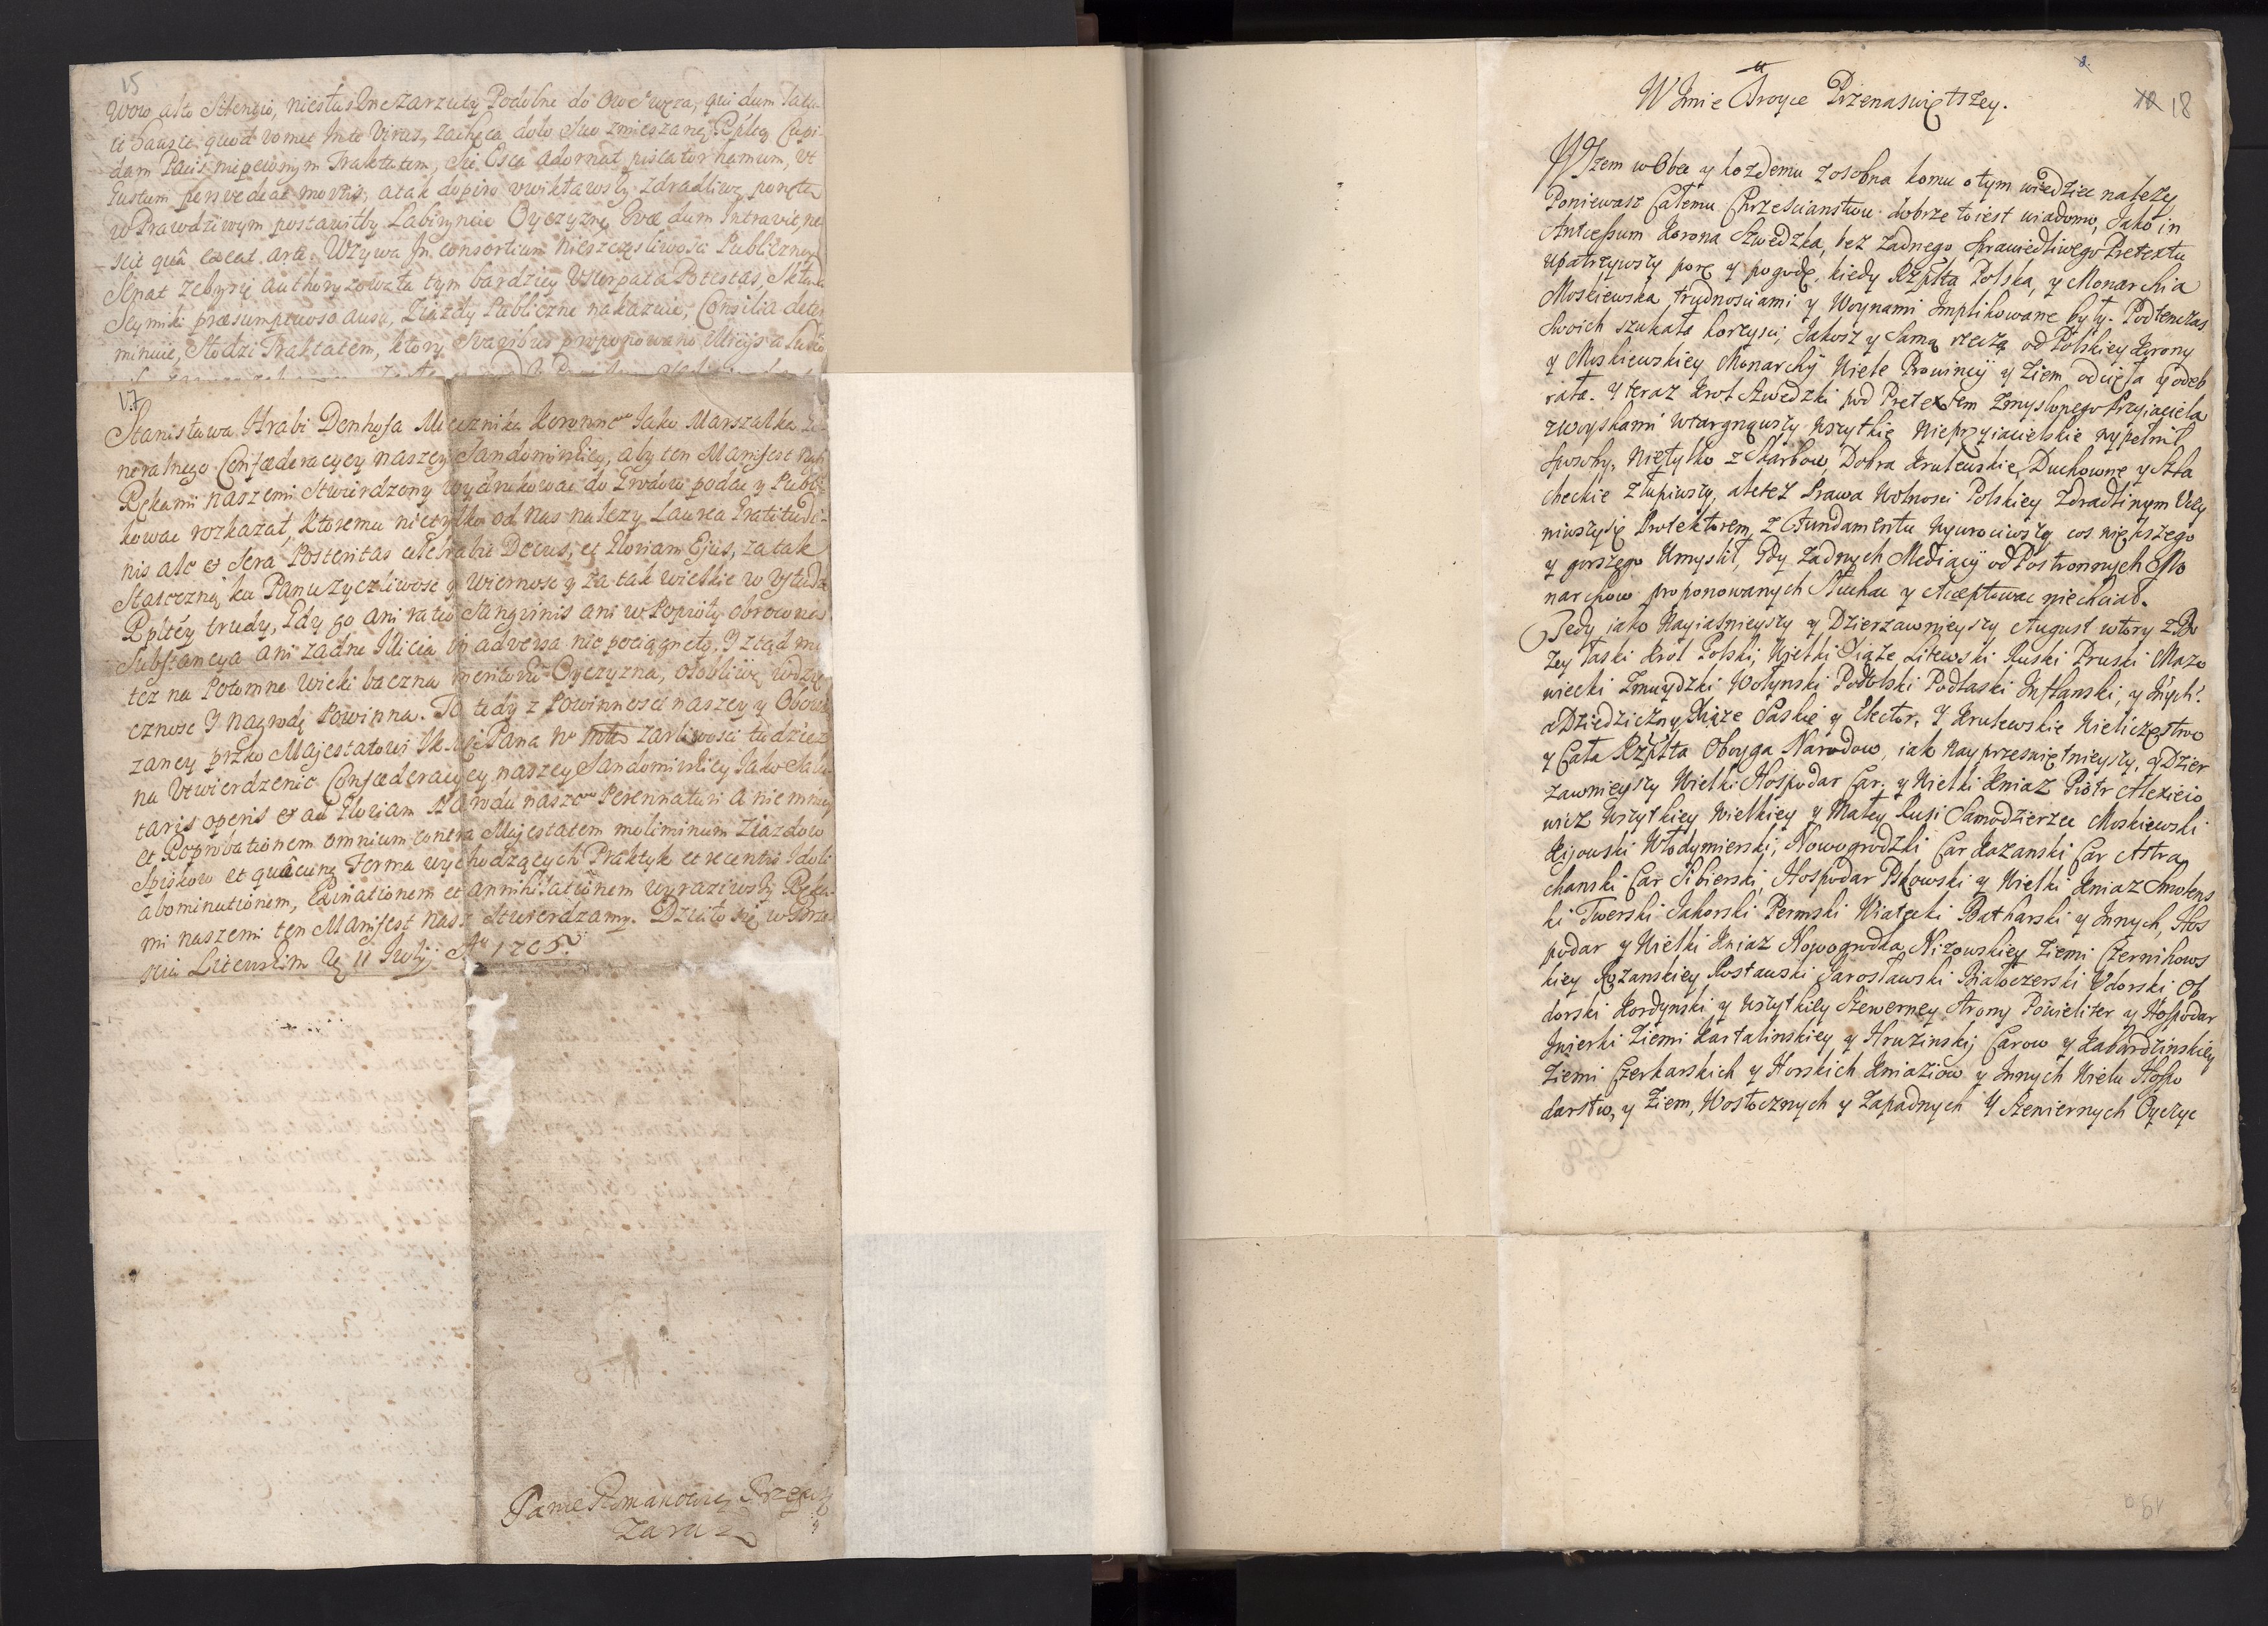 15
wow alto Silentio, niesłuszne zarzuty Podobne do Owe° węża, qui dum
it hauste quod vomet Inte Virus, zachęca dolo suo zmieszaną Rpltą Cupi-
dam Pacis niepewnym Traktatem, sic Esca adornat piscator hamum, Ut
Gustum persvedeat mortis, a tak dopiro uwikławszy zdradliwą ponętą
w Prawdziwym postawiłby Labiryncie Oyczyznę Quæ dum Intravit, ne-
scit quâ exeat arte. Wzywa In consortium nieszczęsliwosci Publiczney
Senat żeby się authoryzowała tym bardziey Usurpata Potestas, Składa
Seymiki præsumptuoso ausu, Ziazdy Publiczne nakazuie, Consilia deter-
minuie, Słodzi Traktatem, ktory Svaribus proponowano
V.7
Stanisława Hrabi Denhofa Miecznika Koronne° Jako Marszałka Ge-
neralnego Confæderacyey naszey Sandomirskiey, aby ten Manifest
Rękami naszemi stwierdzony wydrukować do Grodow podać y Publi-
kować rozkazał, ktoremu nietylko od nas należy Laurea Gratitudi-
nis ale et Sera Posteritas celebrabit Decus, et Gloriam Ejus, za tak
Stateczną ku Panu życzliwość y wierność y za tak wielkie w Usłudze
Rpltéy trudy, Gdy go ani ratio Sangvinis ani w Popioły obrocona
Substancya ani żadne Illicia in adversa nie pociągneły, Y ztąd mu
też na Potomne wieki baczna meritorũ Oyczyzna, osobliwą wdzię-
czność Y nagrodę Powinna. To tedy z Powinności naszey y Obowią-
zaney przko Majestatowi JKMci Pana No żarliwości tudziez
na Utwierdzenie Confæderacyey naszey Sandomirskiey Jako Salu-
taris operis et ad Gloriam Narodu nasze° Perennaturi a niemniey
et Reprobationem omnium contra Majestatem moliminum Ziazdow
Spiskow et quâcunq Forma wychodzących Praktyk et recentis Idoli
abominationem, Eximationem et annihilationem wyraziwszy Ręka-
mi naszemi ten Manifest Nasz stwierdzamy. Działo się w Brze-
sciu Litewskim D 11 July: A° 1705.
Panie Romanowicz
Zaraz
18
W Imie Troyce Przenaswiętszey.
Wszem wobec y kożdemu zosobna komu otym wiedziec należy
Poniewasz Całemu Chrzescianstwu dobrze to iest wiadomo, Jako in
Antecessum Korona Szwedzka, bez żadnego sprawiedliwego Pretextu
upatrzywszy porę y pogodę, kiedy Rzplta Polska, y Monarchia
Moskiewska trudnosciami y Woynami Implikowane były. Podtenczas
swoich szukała korzysci, Jakosz y Samą rzeczą od Polskiey Korony
y Moskiewskiey Monarchÿ Wiele Prowincÿ y Ziem odcięła y odeb
rała. Y teraz Krol Szwedzki pod Pretextem zmyslonego Przyiaciela
zwoyskami wtargnąwszy wszytkie nieprzyiacielskie wypełnił
sposoby, nietylko z Skarbow, Dobra Krulewskie, Duchowne y Szla
checkie złupiwszy, ale też Prawa Wolnosci Polskiey zdradliwym Uczy
niwszysię Protektorem, z Fundamentu wywrociwszy cos większego
y gorszego Umyslił, Gdy żadnych Mediacÿ od Postronnych Mo
narchow proponowanych słuchac y akceptowac niechciał.
Tedy iako Nayiasnieyszy y Dzierzawnieyszy August wtory z Bo
żey łaski Krol Polski, Wielki Xiąże Litewski Ruski Pruski Mazo
wiecki Zmuydzki Wołynski Podolski Podlaski Inflanski, y Inych
a Dziedziczny Xiąże Saskie y Elector. Y Krulewskie Wieliczęstwo
y Cała Rzplta Oboyga Narodow, iak Nayprzeswiętnieyszy, y Dzier
zawnieyszy Wielki Hospodar Car, y Wielki Kniaz Piotr Alexieio
wicz wszytkiey Wielkiey y Małey Rusi Samodzierzec Moskiewski
Kijowski Włodymierski, Nowogrodzki Car Kazanski Car Astra
chanski Car Sibierski, Hospodar Pskowski y Wielki Kniaz Smolens
ki Twerski Juhorski Permski Wiatecki Batharski y Innych, Hos
podar y Wielki Kniaz Nowogrodka Nizowskiey Ziemi Czernihows
kiey Rozanskiey Rostawski Jarosławski Białoczerski Udorski Ob
dorski Kordynski y wszytkiey Szewerney Strony Powieliter y Hospodar
Iwierki Ziemi Kartalinskiey y Hruzinskij Carow y Kabardzinskiey
Ziemi Czerkarskich y Horskich Kniaziow y Innych Wielu Hospo
darstw, y Ziem, Wostocznych y Zapadnych Y Szewiernych Oyczyc
19a